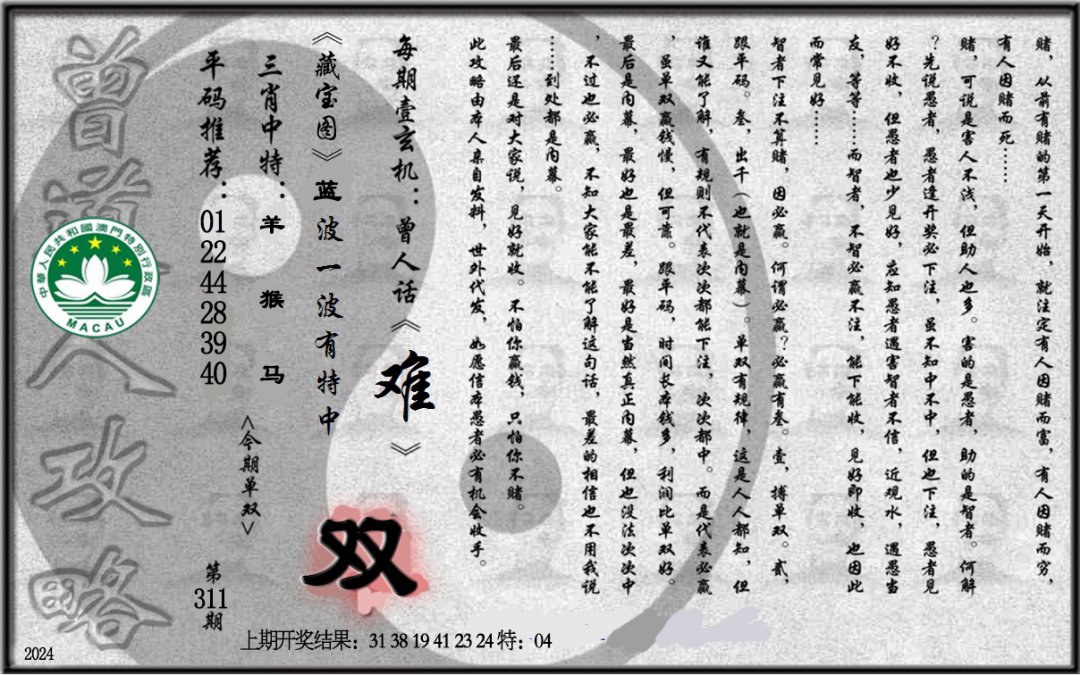 赌,从前有赌的第一天开始,就注定有人因赌而富,有人因赌而穷,
有人因赌而死……
赌,可说是害人不浅,但助人也多。害的是愚者,助的是智者。何解
?先说愚者,愚者逢开奖必下注,虽不知中不中,但也下注,愚者见
好不收,但愚者也少见好,应知愚者遇害智者不信,近观水,遇愚当
友,等等……而智者,不智必赢不注,能下能收,见好即收,也因此
而常见好……
智者下注不算赌,因必赢。何谓必赢?必赢有叁。壹,搏单双。贰,
跟平码。叁,出千(也就是内幕)。单双有规律,这是人人都知,但
谁又能了解,有规则不代表次次都能下注,次次都中。而是代表必赢
,虽单双赢钱慢,但可靠。跟平码,时间长本钱多,利润比单双好。
最后是内幕,最好也是最差,最好是当然真正内幕,但也没法次次中
,不过也必赢,不知大家能不能了解这句话,最差的相信也不用我说
……到处都是内幕。
最后还是对大家说,见好就收。不怕你赢钱,只怕你不赌。
此攻略由本人亲自发料,世外代发,如愿信本愚者必有机会收手。
每期壹玄机:曾人话《难》
《藏宝图》蓝波一波有特中
三肖中特:羊 猴 马
平码推荐:01 22 44 28 39 40
<今期单双>
双
第311期
曾道人攻略
中華人民共和國澳門特別行政區
MACAU
上期开奖结果:31 38 19 41 23 24 特:04
2024